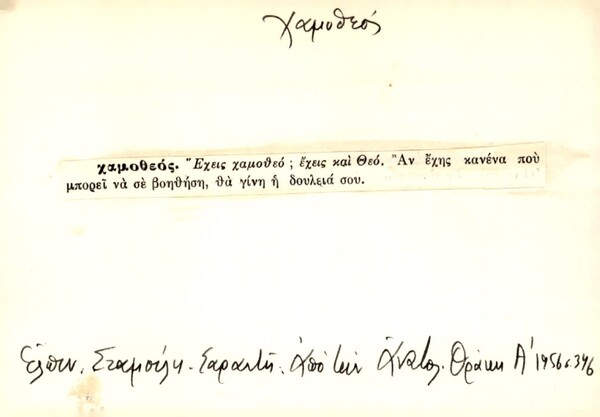 Χαμοθεός
χαμοθεός. Ἔχεις χαμοθεό ; ἔχεις καὶ Θεό. Ἂν ἔχῃς κανένα ποὺ
μπορεῖ νὰ σὲ βοηθήσῃ, θὰ γίνῃ ἡ δουλειά σου.
Ἐλπιν. Σταμούλη - Σαραντῆ. Ἀπὸ τὴν Ἀνατολ. Θράκη Α' 1956 σ. 346